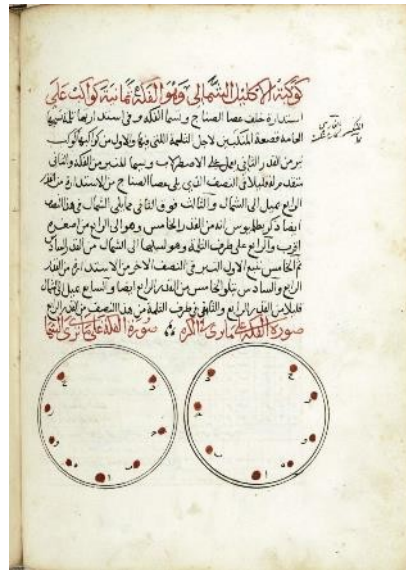 كوكبة الاكليل الشمالي وهو الفكة ثمانية كواكب على
استدارة خلف عصا الصناج ويسما الفكة وفى استدارتها ثلمة تسميها
العامة قصعة المساكين لاجل الثلمة التى فيها والاول من كواكبها كوكب
نير من القدر الثانى يعلى على الاصطرلاب ويسما المنير من الفكة والثانى
متقدم له قليلا فى النصف الذى يلى عصا الصناج من الاستدارة من القدر
الرابع يميل الى الشمال والثالث فوق الثانى مما يلى الشمال فى هذا النصف
ايضا ذكر بطلميوس انه من القدر الخامس وهو الى الرابع من اصغره
اقرب والرابع على طرف الثلمة وهو اميلها الى الشمال من القدر السادس
ثم الخامس يتبع الاول النير فى النصف الاخر من الاستدارة من القدر
الرابع والسادس يتلو الخامس من القدر الرابع ايضا والسابع يميل الى الشمال
قليلا من القدر الرابع والثامن فى طرف الثلمة من هذا النصف من القدر الرابع
صورة الفكة على ما يرى فى الكرة صورة الفكة على ما يرى فى السما